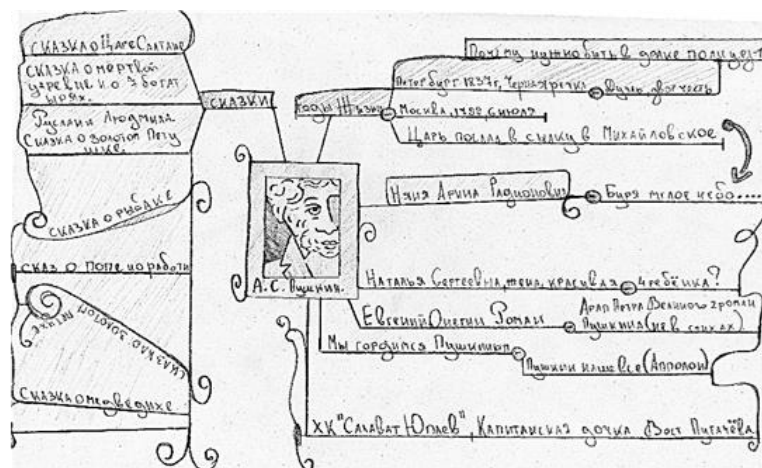 СКАЗКА О ЦАРЕ САЛТАНЕ
СКАЗКА О МЕРТВОЙ
ЦАРЕВНЕ И О 3 БОГАТ
ЫРЯХ.
РУСЛАН И ЛЮДМИЛА
СКАЗКА О ЗОЛОТОМ ПЕТУ
ШКЕ.
СКАЗКА О РЫБКЕ
СКАЗ О ПОПЕ И О РАБОТИ
СКАЗКА О ЗОЛОТОМ
СКАЗКА О МЕДВЕДИХЕ
СКАЗКИ
ГОДЫ ЖИЗНИ
ПОЧЕМУ НУЖНО БИТЬ В
ПЕТЕРБУРГ 1837 г, ЧЕРНАЯ РЕЧКА
МОСКВА, 1799, 6 ИЮНЯ
ЦАРЬ ПОСЛАЛ В ССЫЛКУ В МИХАЙЛОВСКОЕ
НЯНЯ АРИНА РАДИОНОВНА
БУРЯ МГЛОЮ НЕБО....
А.С. ПУШКИН.
НАТАЛЬЯ СЕРГЕЕВНА, ЖЕНА, КРАСИВАЯ
4 РЕБЁНКА?
ЕВГЕНИЙ ОНЕГИН РОМАН
АРАП ПЕТРА ВЕЛИКОГО 2 РОМАН
ПУШКИНА (НЕ В СТИХАХ)
МЫ ГОРДИМСЯ ПУШКИНЫМ
ПУШКИН НАШЕ ВСЕ (АППОЛОН)
ХК "САЛАВАТ ЮЛАЕВ", КАПИТАНСКАЯ ДОЧКА ВОСТ ПУГАЧЁВА